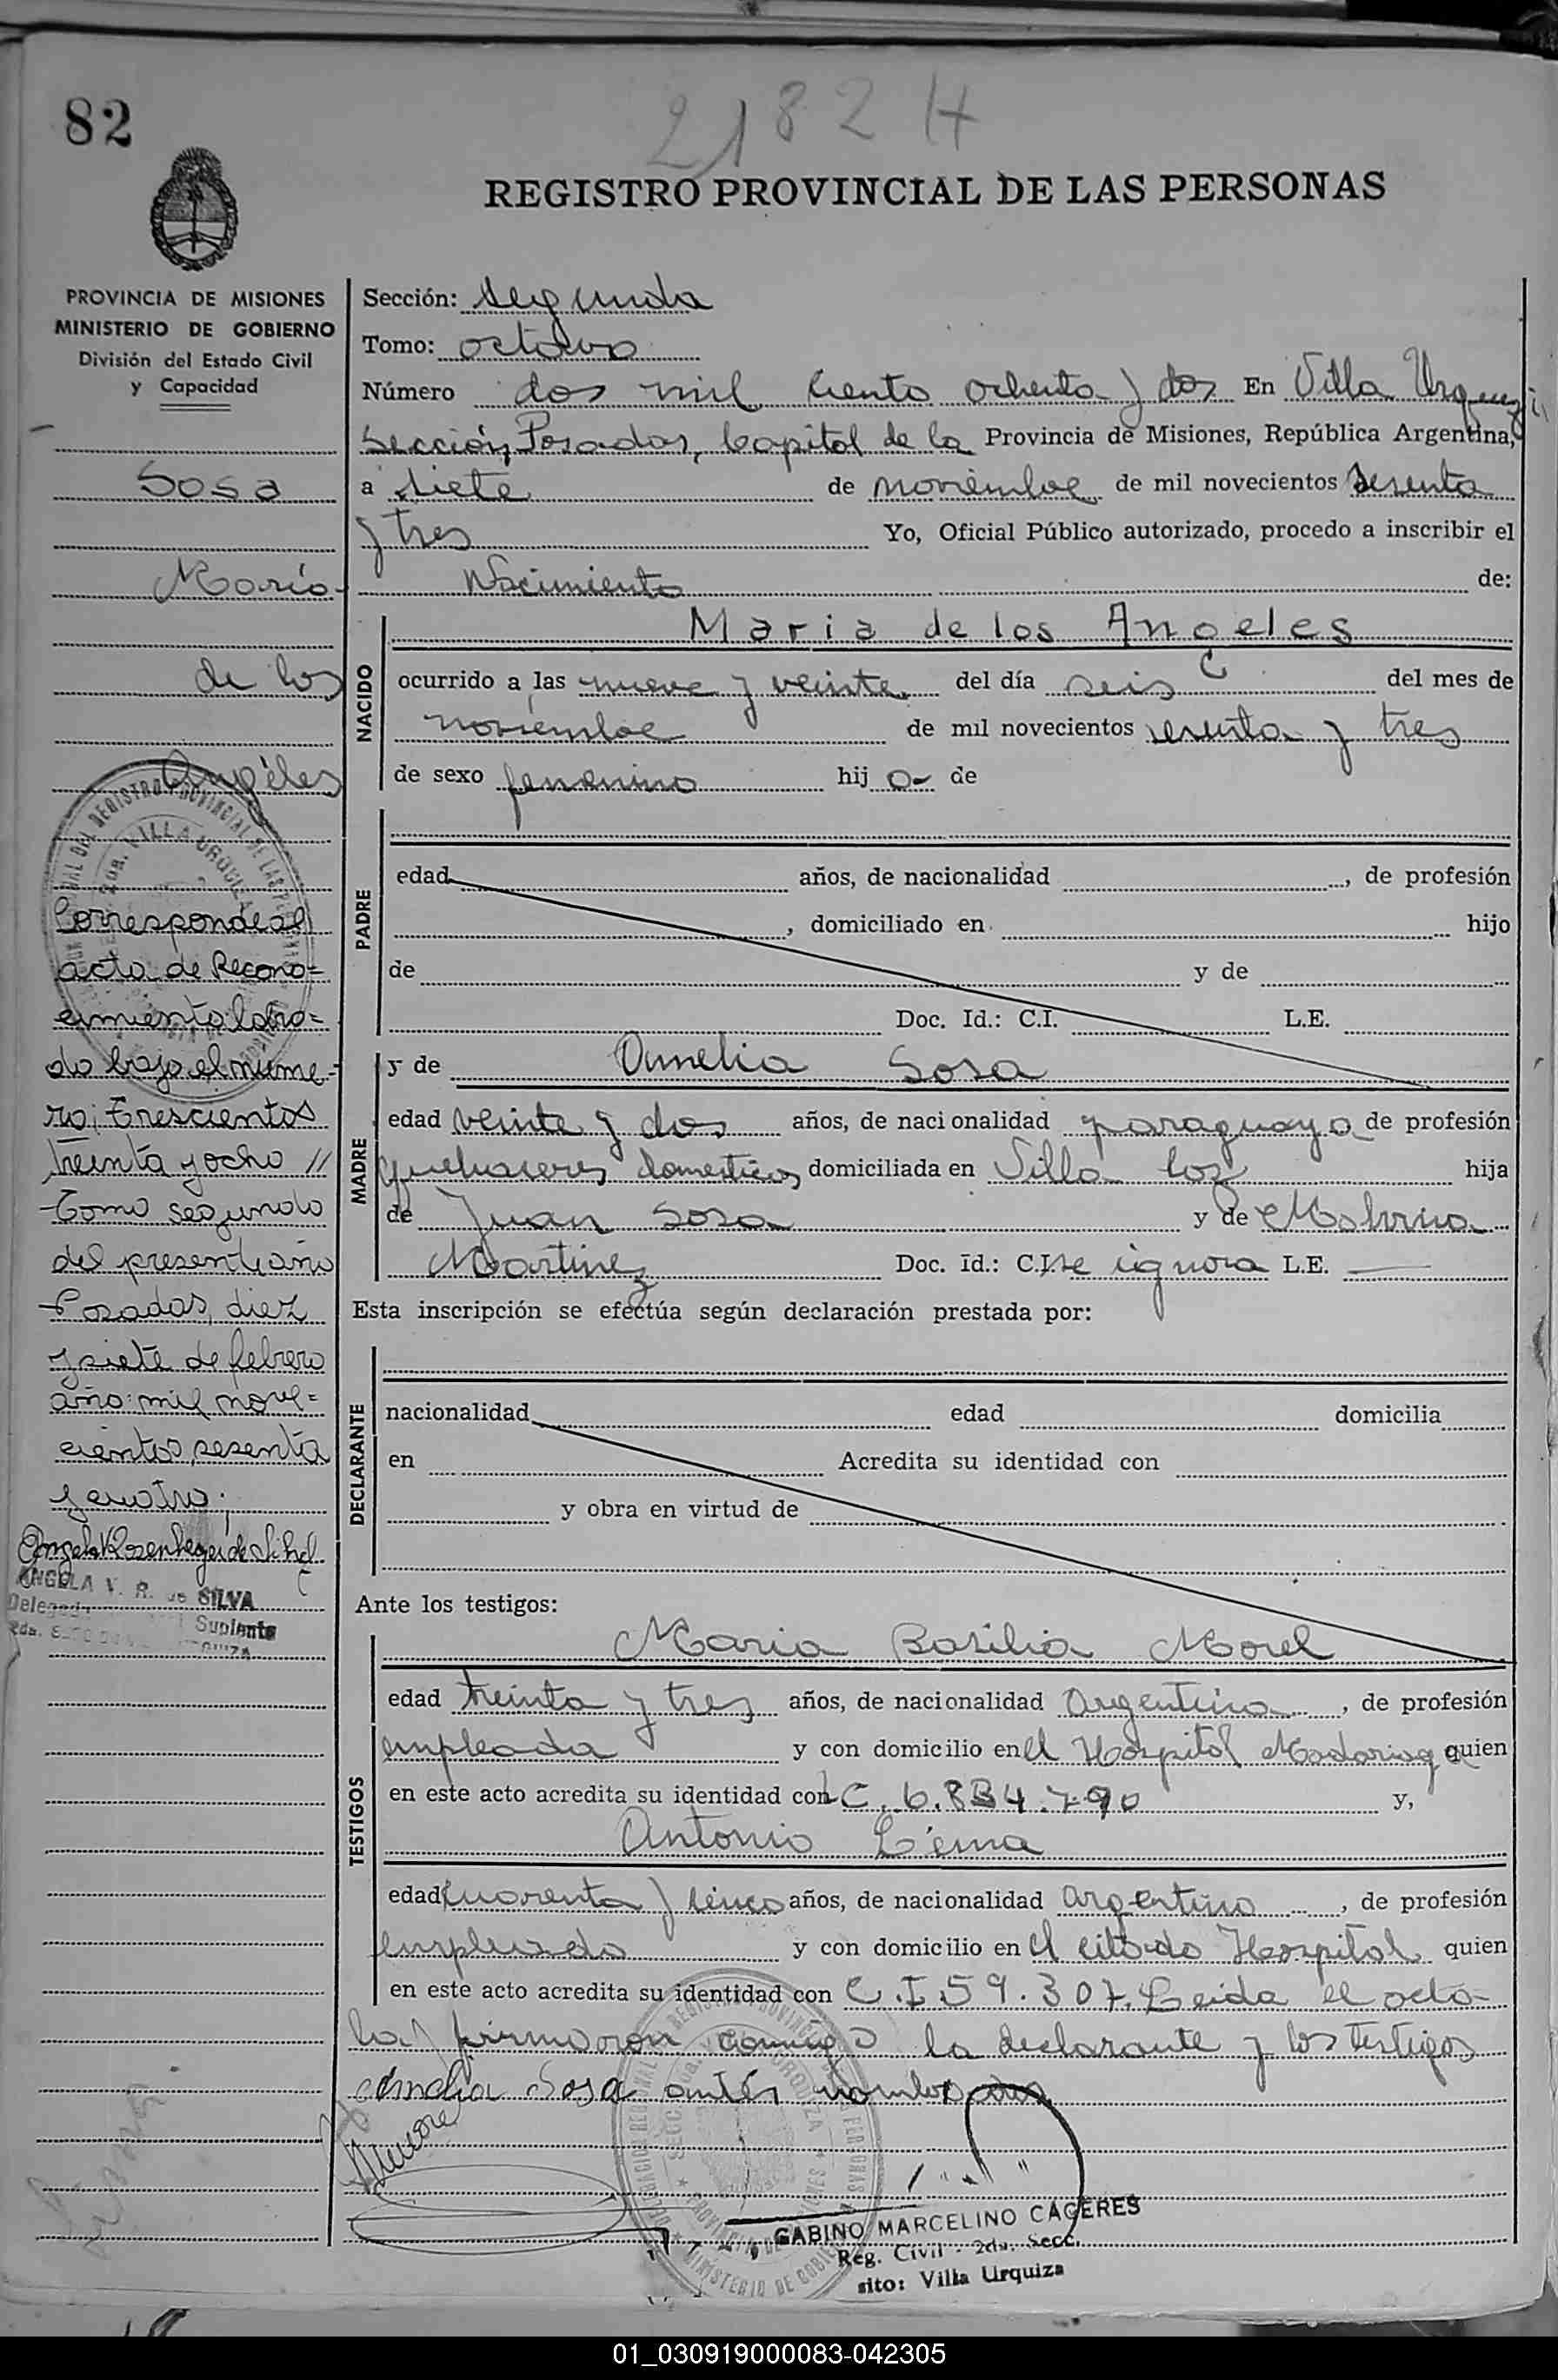 82
2182 H
REGISTRO PROVINCIAL DE LAS PERSONAS
PROVINCIA DE MISIONES
MINISTERIO DE GOBIERNO
División del Estado Civil
y Capacidad
Sosa
Maria
de los
Angeles
Corresponde al
acta de Recono=
cimiento labra=
do bajo el núme-
ro: trescientos
treinta y ocho //
-Tomo segundo
del presente año
-Posadas, diez
y siete de febrero
año: mil nove=
cientos, sesenta
y cuatro.
ANGELA V. R. de SILVA
Suplente
Sección: Segunda
Tomo: octavo
Número dos mil ciento ochenta y dos En Villa Urquiza
Sección, Posadas, Capital de la Provincia de Misiones, República Argentina,
a siete de noviembre de mil novecientos sesenta
y tres Yo, Oficial Público autorizado, procedo a inscribir el
Nacimiento de:
NACIDO
Maria de los Angeles
ocurrido a las nueve y veinte del día seis del mes de
noviembre de mil novecientos sesenta y tres
de sexo femenino hij a- de
PADRE
edad años, de nacionalidad , de profesión
, domiciliado en hijo
de y de
Doc. Id.: C.I. L.E.
MADRE
y de Amelia Sosa
edad veinte y dos años, de nacionalidad paraguaya de profesión
quehaceres domesticos domiciliada en Villa hija
de Juan Sosa y de Malvina
Martinez Doc. Id.: C.I. se ignora L.E. —
Esta inscripción se efectúa según declaración prestada por:
DECLARANTE
nacionalidad edad domicilia
en Acredita su identidad con
y obra en virtud de
Ante los testigos:
TESTIGOS
Maria Basilia Morel
edad treinta y tres años, de nacionalidad Argentina , de profesión
empleada y con domicilio en el Hospital Madariaga quien
en este acto acredita su identidad con LC. 6.884.790 y,
Antonio Lema
edad cuarenta y cinco años, de nacionalidad argentino , de profesión
empleado y con domicilio en el citado Hospital quien
en este acto acredita su identidad con C.I 59.307. Leida el acta
la firmaron conmigo la declarante y los testigos
Amelia Sosa antes nombrados
GABINO MARCELINO CACERES
Reg. Civil - 2da. Secc.
sito: Villa Urquiza
01_030919000083-042305